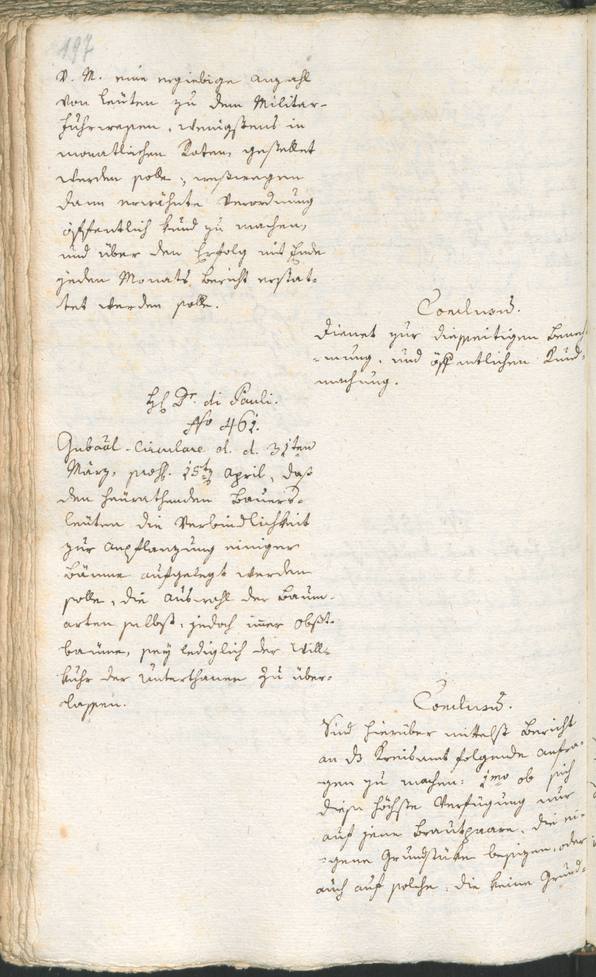 197
v. M. eine ergiebige Anzahl
von Leüten zu dem Militar-
Fuhrwesen, wenigstens in
monatlichen Raten, gestellet
werden solle, weßwegen
dann erwähnte Verordnung
öffentlich kund zu machen,
und über den Erfolg mit Ende
jeden Monats Bericht erstat-
tet werden solle.
Conclusum.
Dienet zur diesseitigen Beneh-
mung, und öffentlichen Kund-
machung.
H. Dr. di Pauli.
No 461.
Gubäal-Circulare d. d. 31ten
März, präs. 15ten April, daß
den heürathenden Bauers-
leüten die Verbindlichkeit
zur Anpflanzung einiger
Bäume aufgelegt werden
solle, die Auswahl der Baum-
arten selbst, jedoch immer Obst-
baüme, seÿ lediglich der Will-
kuhr der Unterthanen zu über-
lassen.
Conclusum.
Sind hierüber mittelst Bericht
an das Kreisamt folgende Anfra-
gen zu machen: 1mo ob sich
diese höchste Verfügung nur
auf jene Brautpaare, die ei-
gene Grundstüke besizen, oder
auch auf solche, die keine Grund-